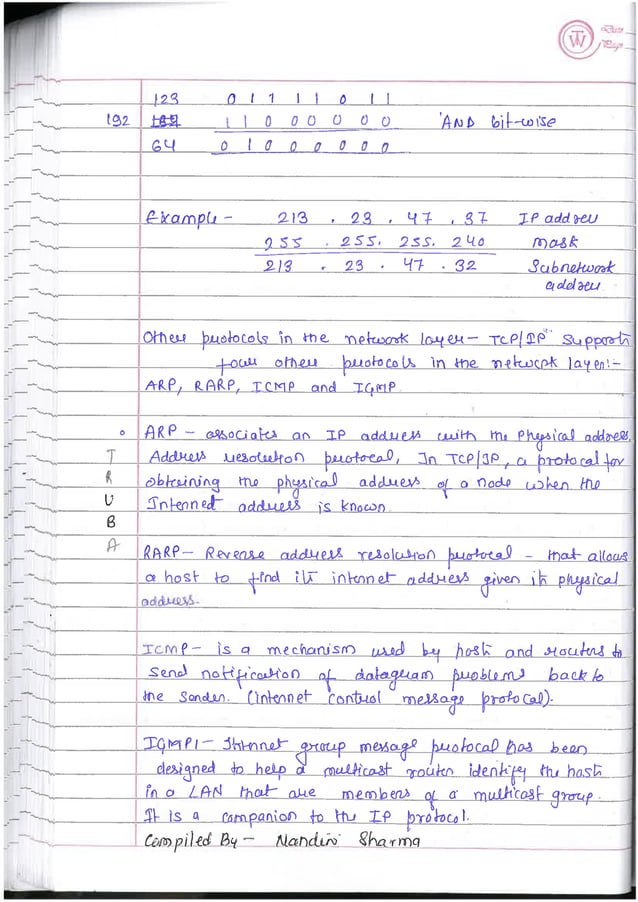 TW Date
Page
123 0 1 1 1 1 0 1 1
192 1 1 0 0 0 0 0 0 AND bit-wise
64 0 1 0 0 0 0 0 0
Example - 213 . 23 . 47 . 37 IP address
255 . 255. 255. 240 mask
213 . 23 . 47 . 32 Subnetwork
address
Other protocols in the network layer - TCP/IP supports
four other protocols in the network layer:-
ARP, RARP, ICMP and IGMP
ARP - associates an IP address with the Physical address.
Address resolution protocal, In TCP/IP, a protocal for
obtaining the physical address of a node when the
Internet address is known.
RARP - Reverse address resolution protocal - that allows
a host to find its internet address given its physical
address.
ICMP - is a mechanism used by hosts and routers to
send notification of datagram problems back to
the sender. (internet control message protocal).
IGMP - Internet group message protocal has been
designed to help a multicast router identify the hosts
in a LAN that are members of a multicast group.
It is a companion to the IP protocol.
Compiled By - Nandini Sharma
T
R
U
B
A